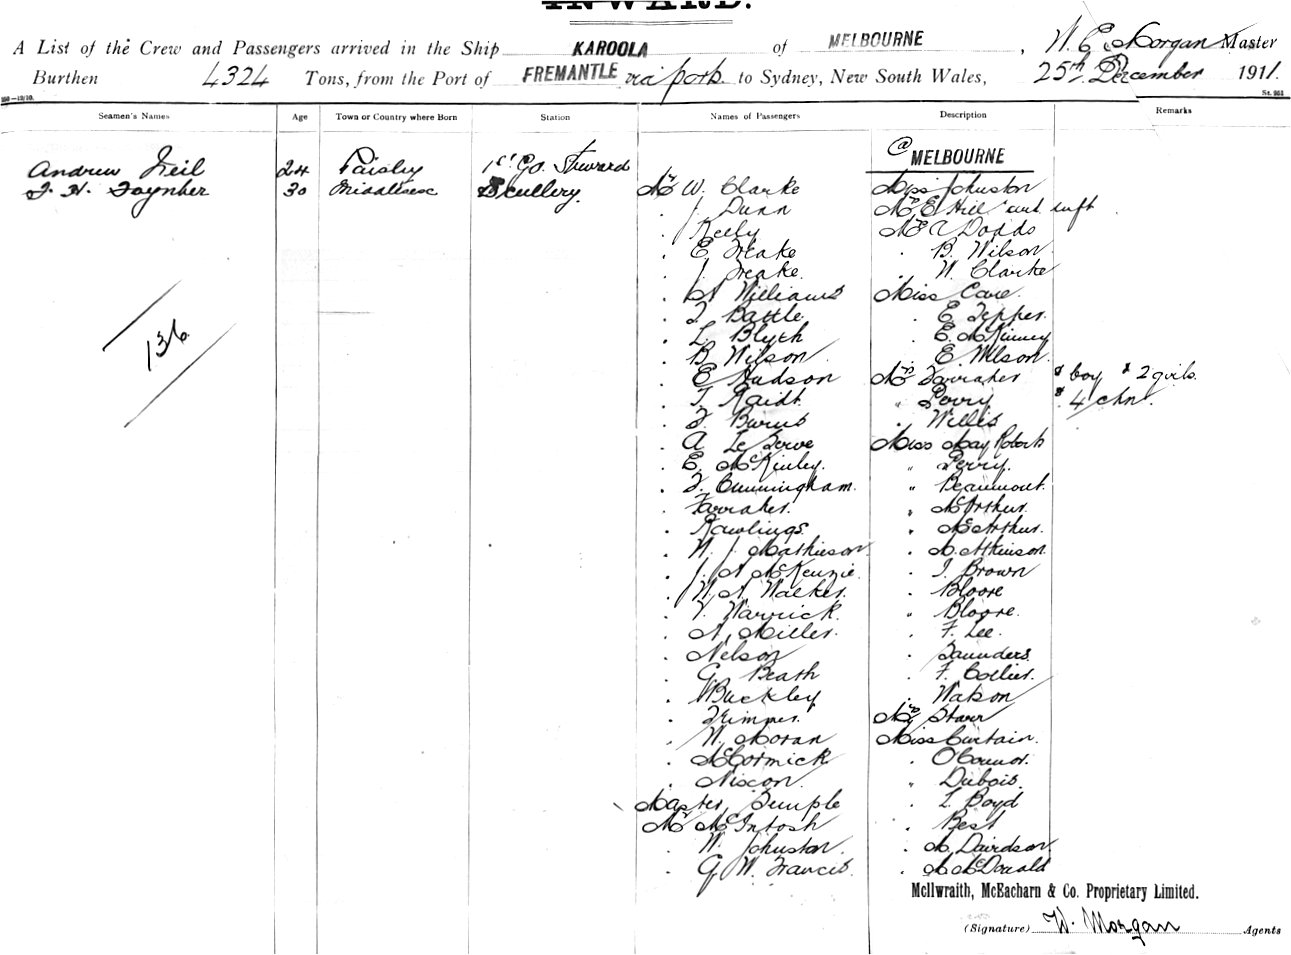 INWARD.
A List of the Crew and Passengers arrived in the Ship KAROOLA of MELBOURNE, W. E. Morgan Master
Burthen 4324 Tons, from the Port of FREMANTLE via ports to Sydney, New South Wales, 25th December 1911.
St. 251
Seamen's Names Age Town or Country where Born Station Names of Passengers Description Remarks
@ MELBOURNE
Andrew Neil 24 Paisley 1st Gd. Steward
30 Middlesex Scullery.
136
Mr W. Clarke
. J. Dunn
. Kelly
. E. Freake
. J. Freake
Williams
. T. Battle
. L. Blyth
. B. Wilson
. E. Hudson
. T. Raidt
. Burns
. A Le Serve
. E. McKinley.
Cunningham.
. Farraher.
. Rawlings.
. W. J. Mathieson
McKenzie
Walker.
. V. Warrick.
Miller.
. Nelson
. G. Beath
. Buckley
. Trimper.
. W. Moran
. McCormick
. Nixon
Master Semple
Mr McIntosh
. W. Johnston.
. G. W. Francis.
Miss Johnston
Mrs E Hill and inft
Mrs Dodds
. B. Wilson
. W. Clarke
Miss Cave.
. E. Tepper.
. E. McKinney
. E Wilson
Mrs Farraher & boy & 2 girls.
" Perry & 4 chn.
. Willis
Miss May Roberts
" Perry.
" Beaumont.
" McArthur.
" McArthur.
. Atkinson
. I. Brown
. Bloore
" Bloore.
. F. Lee.
. Saunders.
. F. Collier.
. Watson
Mrs Starr
Miss Curtain.
. O'Connor.
" Dubois.
. L. Boyd
. Best
. A. Davidson
. A. McDonald
McIlwraith, McEacharn & Co. Proprietary Limited.
(Signature) W. Morgan Agents